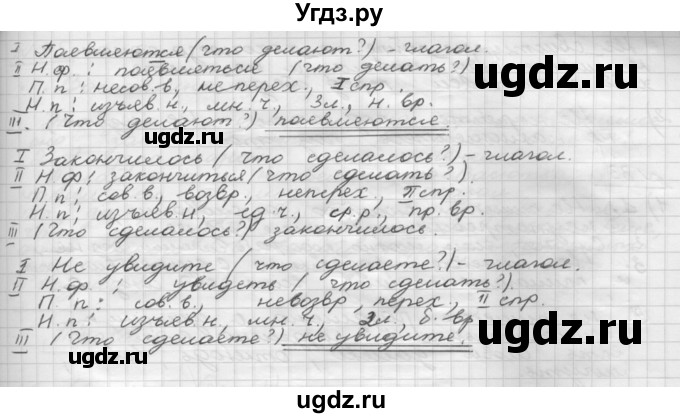 Угдз.ру
I Появляются (что делают?) - глагол.
II Н.ф.: появляться (что делать?)
П.п: несов.в, неперех., I спр.
Н.п: изъяв.н., мн.ч., 3л., н.вр.
III. (Что делают?) появляются
I Закончилось (что сделалось?) - глагол.
II Н.ф: закончиться (что сделать?).
П.п: сов.в., возвр., неперех., II спр.
Н.п: изъяв.н., ед.ч., ср.р., пр.вр.
III (Что сделалось?) закончилось.
I Не увидите (что сделаете?) - глагол.
II Н.ф.: увидеть (что сделать?)
П.п: сов.в., невозвр., перех., II спр.
Н.п: изъяв.н., мн.ч., 2л., б.вр
III (Что сделаете?) не увидите.
ugdz.ru
ugdz.ru
ugdz.ru
ugdz.ru
ugdz.ru
ugdz.ru
ugdz.ru
ugdz.ru